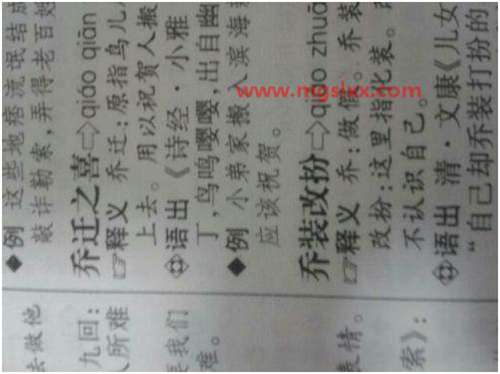 去做他
九回:
人所难
要我们
难。
表情。
索》:
◆例 这些地痞流氓结成
敲诈勒索,弄得老百姓
乔迁之喜⇨qiáo qiān
☞释义 乔迁:原指鸟儿
上去。用以祝贺人搬
语出《诗经·小雅
丁,鸟鸣嘤嘤,出自幽
◆例 小弟家搬入滨海
应该祝贺。
乔装改扮⇨qiáo zhuā
☞释义 乔:做假。乔装
改扮:这里指化装。
不认识自己。
语出 清·文康《儿女
“自己却乔装打扮的